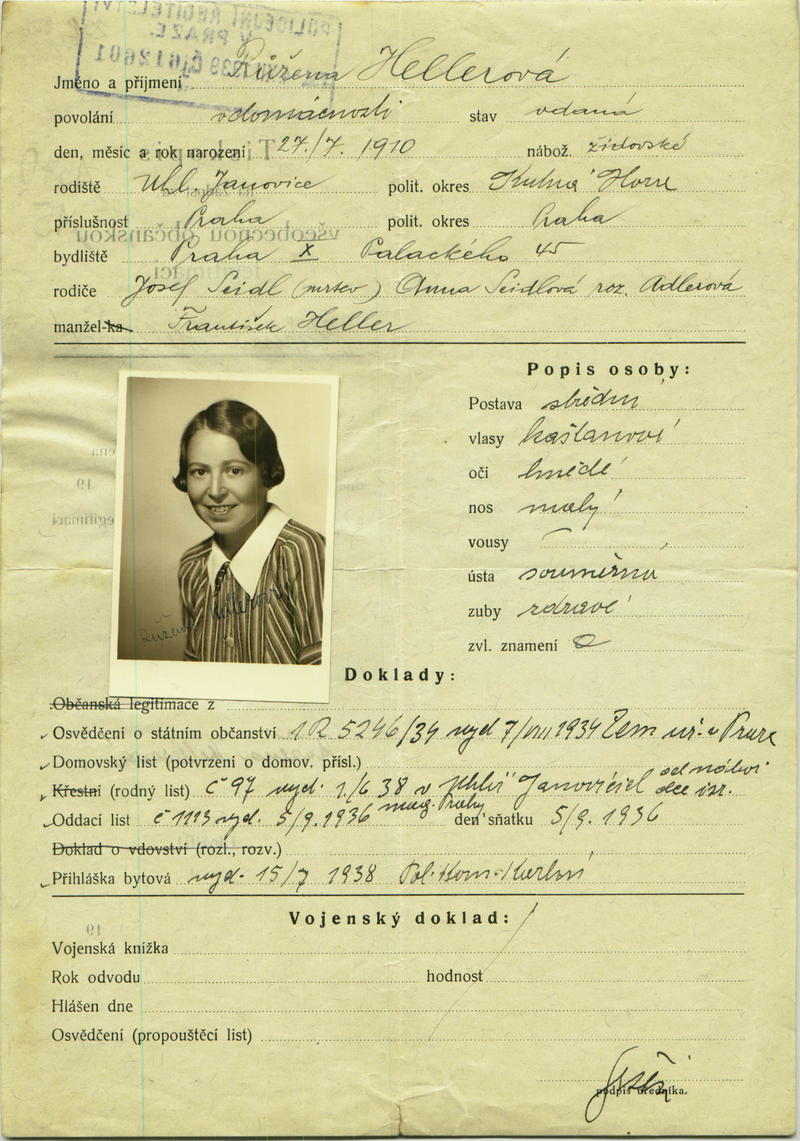 Jméno a příjmení Růžena Hellerová
povolání v domácnosti stav vdaná
den, měsíc a rok narození 27./7. 1910 nábož. židovské
rodiště Uhl. Janovice polit. okres Kutná Hora
příslušnost Praha polit. okres Praha
bydliště Praha X Palackého 45
rodiče Josef Seidl (mrtev) Anna Seidlová roz. Adlerová
manžel-ka František Heller
Popis osoby:
Postava střední
vlasy kaštanové
oči hnědé
nos malý
vousy –
ústa souměrná
zuby zdravé
zvl. znamení 0
Růžena Hellerová
Doklady:
Občanská legitimace z
Osvědčení o státním občanství 1R 5246/34 vyd 7/VIII 1934 Zem. úř. v Praze
Domovský list (potvrzení o domov. přísl.)
Křestní (rodný list) č 97 vyd. 1/6 38 v Uhlíř Janovicích od nábož. obce isr.
Oddací list č 1113 vyd. 5/9. 1936 mag. Prahy den sňatku 5/9. 1936
Doklad o vdovství (rozl., rozv.)
Přihláška bytová vyd. 15/7 1938 Pol. Kom. Karlín
Vojenský doklad:
Vojenská knížka
Rok odvodu hodnost
Hlášen dne
Osvědčení (propouštěcí list)
podpis úředníka.